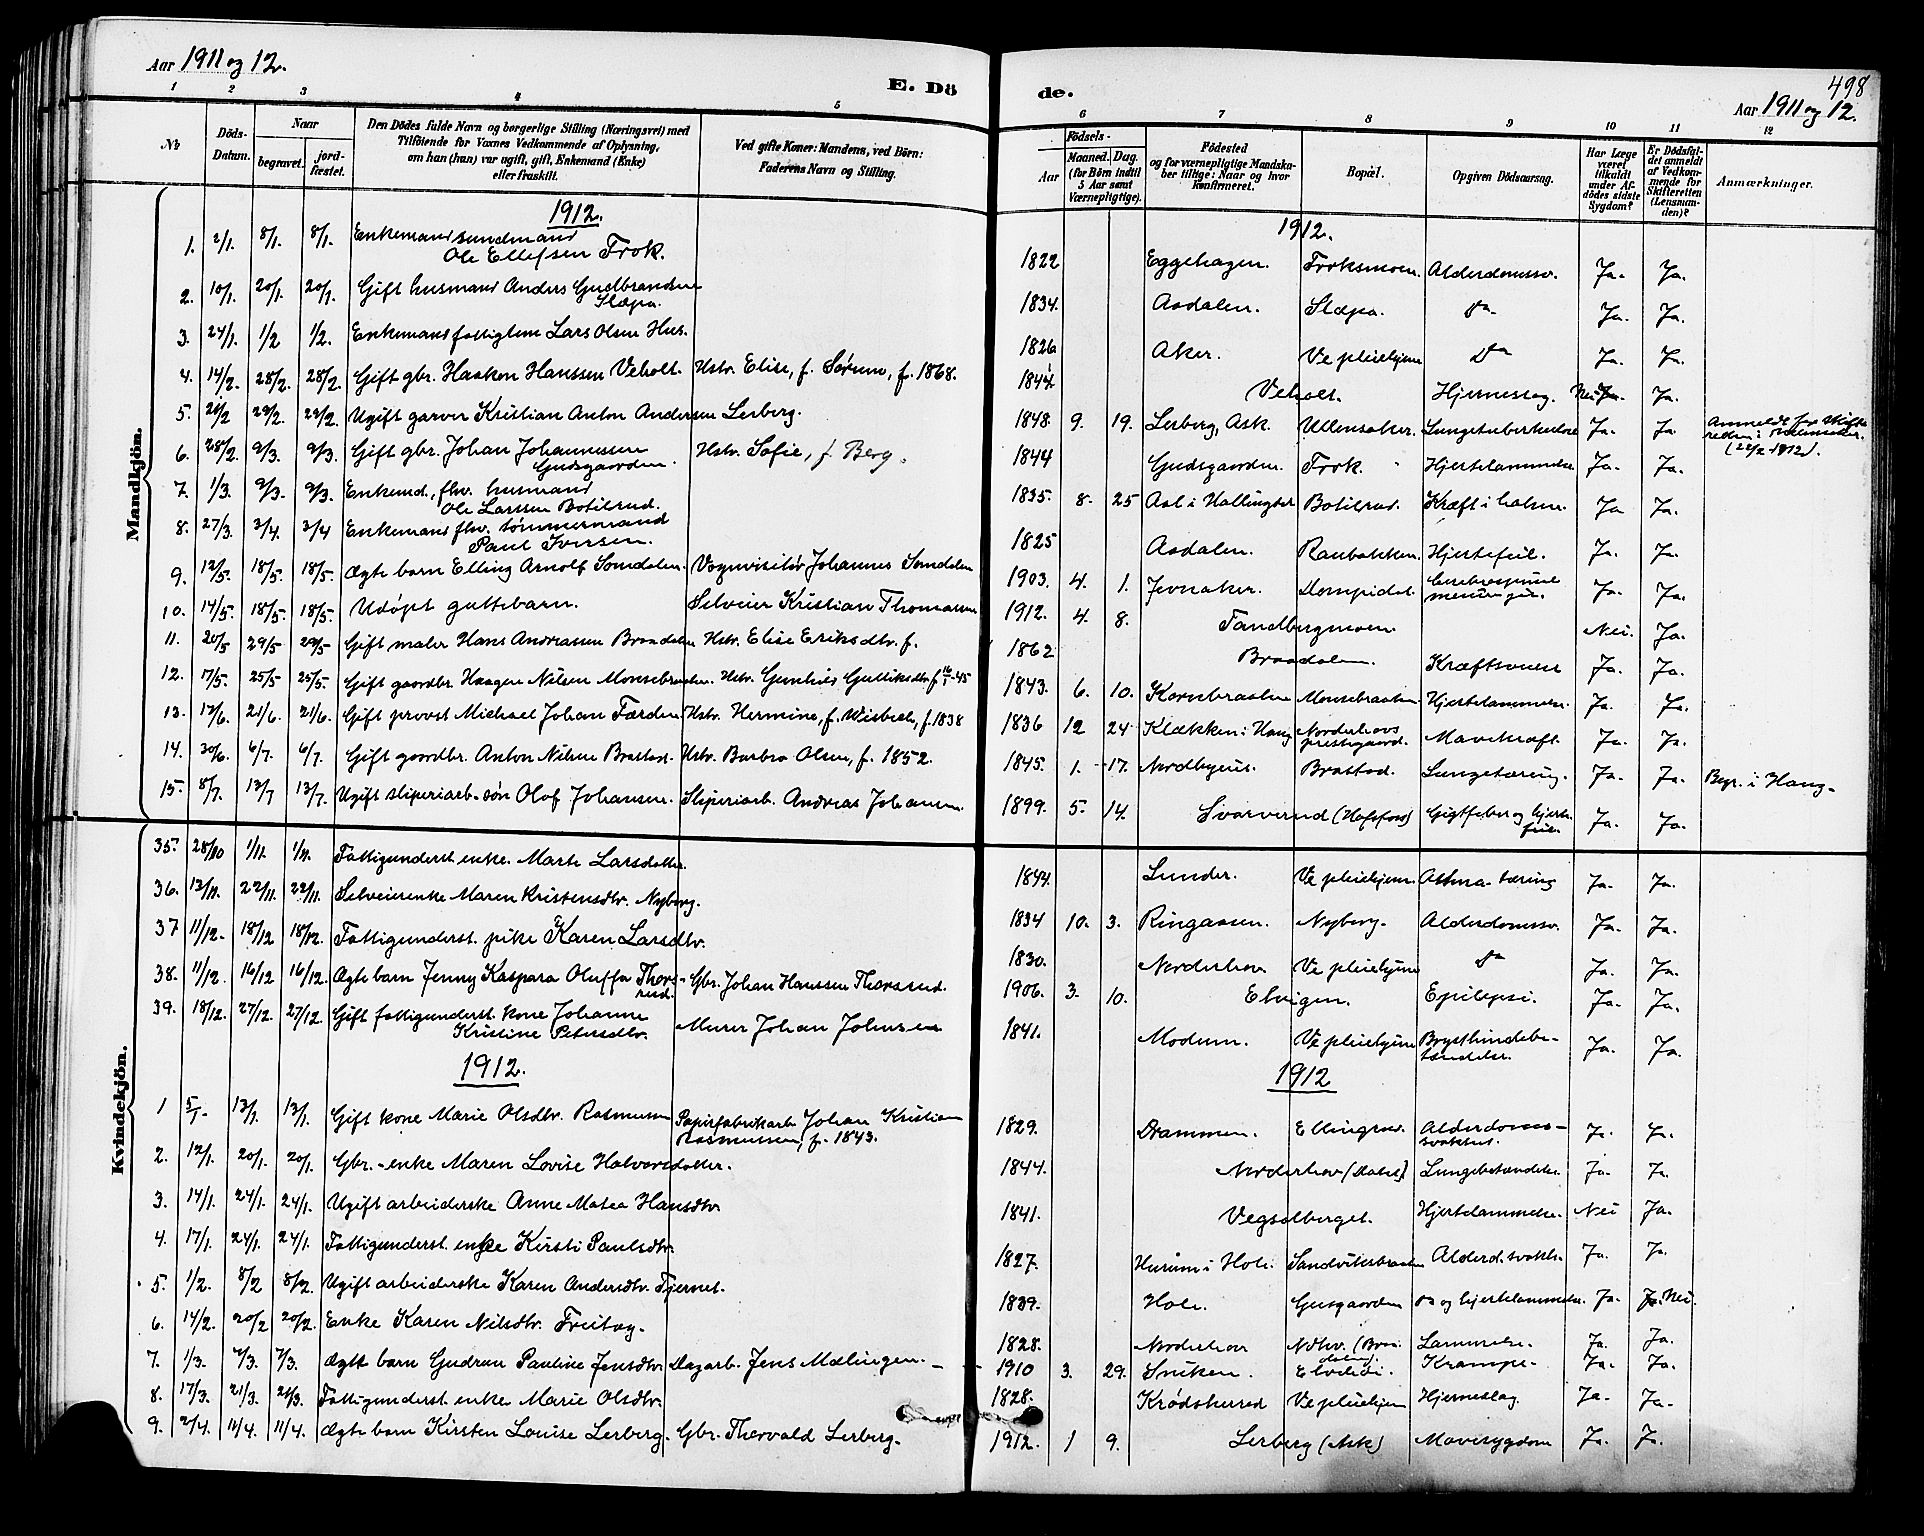 Aar 1911 og 12.
E. Dö
de.
498
Aar 1911 og 12.
1 2 3 4 5 6 7 8 9 10 11 12
No
Döds-Datum.
Naar
begravet.
jord-fæstet.
Den Dödes fulde Navn og borgerlige Stilling (Næringsvei) med
Tilföiende for Voxnes Vedkommende af Oplysning,
om han (hun) var ugift, gift, Enkemand (Enke)
eller fraskilt.
Ved gifte Koner: Mandens, ved Börn:
Faderens Navn og Stilling.
Födsels-
Aar
Maaned.
Dag.
(for Börn indtil
5 Aar samt
Værnepligtige).
Födested
og for værnepligtige Mandska-
ber tillige: Naar og hvor
Konfirmeret.
Bopæl.
Opgiven Dödsaarsag.
Har Læge
været
tilkaldt
under Af-
dödes sidste
Sygdom?
Er Dödsfal-
det anmeldt
af Vedkom-
mende for
Skifteretten
(Lensman-
den)?
Anmærkninger.
Mandkjön.
1912. 1912.
1. 2/1. 8/1. 8/1. Enkemand sundmand Ole Ellefsen Frok. 1822 Eggehagen. Froksmoen. Alderdomssv. Ja. Ja.
2. 10/1. 20/1. 20/1. Gift husmand Anders Gudbrandsen Slæpa. 1834. Aadalen. Slæpa. do. Ja. Ja.
3. 24/1. 1/2 1/2. Enkemand fattiglem Lars Olsen Hus. 1826 Aker. Ve pleiehjem Do Ja. Ja.
4. 14/2. 28/2. 28/2. Gift gbr. Haaken Hanssen Veholt. Hstr. Elise, f. Sørum, f. 1868. 1844. Veholt. Hjerneslag. Nei Ja.
5. 29/2. 29/2. Ugift garver Kristian Anton Andersen Lerberg. 1848. 9. 19. Lerberg, Ask. Ullensaker. Lungetuberkulose Ja. Ja Anmeldt for Skifte
(1912).
6. 28/2. 9/3. 9/3. Gift gbr. Johan Johannessen Gudsgaarden. Hstr. Sofie, f. Berg. 1844 Gudsgaarden. Frok. Hjertelammelse Ja. Ja.
7. 1/3. 9/3. 9/3. Enkemd., fhv. husmand Ole Larssen Botilrud. 1835. 8. 25 Aal i Hallingdal Botilrud. Kræft i halsen. Ja Ja.
8. 27/3. 3/4. 3/4 Enkemand fhv. tømmermand Paul Iversen. 1825 Aadalen. Raubakken. Hjertefeil. Ja. Ja.
9. 12/5. 18/5. 18/5. Ægte barn Elling Arnolf Somdalen. Vognvisitør Johannes Somdalen 1903. 4. 1. Jevnaker. Ja. Ja.
10. 14/5. 18/5. 18/5. Udøpt guttebarn. Selveier Kristian Thomassen 1912. 4. 8. Tandbergmoen. Nei. Ja.
11. 20/5 29/5 29/5 Gift maler Hans Andreassen Braadalen Hstr. Elise Eriksdtr. f. 1862 Braadalen. Kræftsvulst Ja. Ja.
12. 17/5. 25/5 25/5. Gift gaardbr. Haagen Nilsen Monsebraaten. Hstr. Gunhild Gulliksdtr. f. 16/1-45 1843. 6. 10. Monsebraaten Hjertelammelse. Ja. Ja.
13. 12/6. 21/6. 21/6. Gift provst Michael Johan Færden Hstr. Hermine, f. Wisbech, f. 1838 1836 12 24. Klækken i Haug Norderhovs prestegaard. Mavekræft. Ja. Ja.
14. 30/6. 6/7. 6/7. Gift gaardbr. Anton Nilsen Brastad. Hstr. Barbra Olsen, f. 1852. 1845. 1. 17. Brastad. Lungetæring. Ja. Ja. Begr. i Haug.
15. 8/7. 13/7 13/7. Ugift sliperiarb.-søn Olof Johansen. Sliperiarb. Andreas Johansen. 1899. 5. 14. Svarverud (Hofsfoss) Gigtfeber og hjertefeil. Ja. Ja.
Kvindekjön.
35. 28/10 1/11. 1/11. Fattigunderst. enke. Marte Larsdatter. 1844. Lunder. Ve pleiehjem. Asthma-tæring Ja. Ja.
36. 13/11. 22/11. 22/11. Selveierenke Maren Kristensdtr. Nyberg. 1834 10. 3. Ringaasen. Nyberg. Alderdomssv. Ja. Ja.
37 11/12. 18/12 18/12. Fattigunderst. pike Karen Larsdtr. 1830. Norderhov Ve pleiehjem do Ja. Ja.
38. 11/12. 16/12 16/12. Ægte barn Jenny Kaspara Oluffa Thorsrud. Gbr. Johan Hanssen Thorsrud. 1906. 3. 10. Elvigen. Epilepsi. Ja. Ja.
39. 18/12. 27/12. 27/12. Gift fattigunderst. kone Johanne Kristine Petersdtr. Murer Johan Johnsen 1841. Modum. Ve pleiehjem Brysthindebetændelse. Ja. Ja.
1912. 1912
1 5/1. 13/1. 13/1. Gift kone Marie Olsdtr. Rasmussen Papirfabrikarb. Johan Kristian Rasmussen, f. 1843. 1829. Drammen. Ellingrud. Alderdomssvakhet. Ja. Ja.
2. 12/1. 20/1. 20/1. Gbr.-enke Maren Lovise Halvorsdatter. 1844. Norderhov Lungebetændelse. Ja. Ja.
3. 14/1. 24/1. 24/1. Ugift arbeiderske Anne Matea Hansdtr. 1841. Vegsalberget. Hjertelammelse. Nei Ja.
4. 17/1. 24/1. 24/1. Fattigunderst. enke Kirsti Paulsdtr. 1827. Hurum i Hole. Sandvikbraaten Alderd. svakh. Ja. Ja.
5. 1/2. 8/2 8/2. Ugift arbeiderske Karen Andersdtr. Tjernet. 1839. Hole. Gusgaarden do og hjertelammelse. Ja. Nei.
6. 14/2. 20/2 20/2. Enke Karen Nilsdtr. Freitag. 1828. Norderhov Ndhv. Lammelse. Ja. Ja.
7. 1/3. 7/3. 7/3. Ægte barn Gudrun Pauline Jensdtr. Dagarb. Jens Mælingen. 1910 3. 29. Sniken. Krampe. Ja. Ja.
8. 17/3. 21/3. 21/3. Fattigunderst. enke Marie Olsdtr. 1828. Krødsherred Ve pleiehjem Hjerneslag. Ja. Ja.
9. 2/4. 11/4. 11/4. Ægte barn Kirsten Louise Lerberg. Gbr. Thorvald Lerberg. 1912. 1 9. Lerberg (Ask) Mavesygdom Ja. Ja.